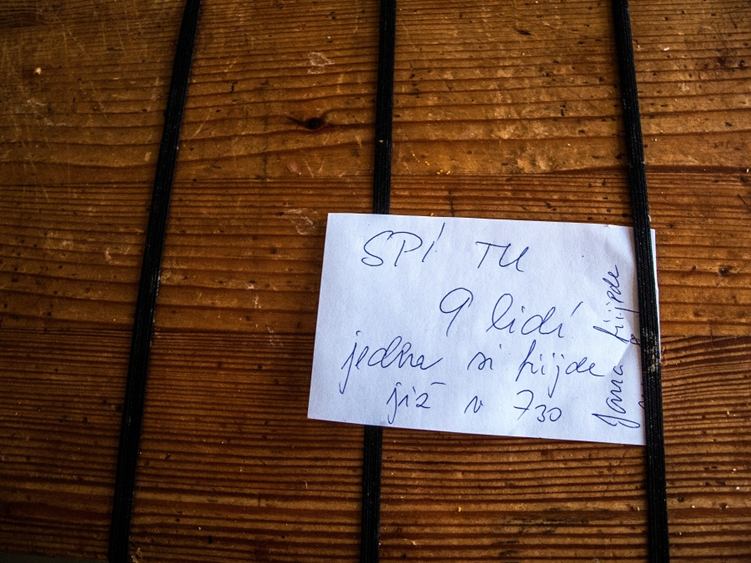 SPÍ TU
9 lidí
jedna si přijde
již v 730
Jana přijde